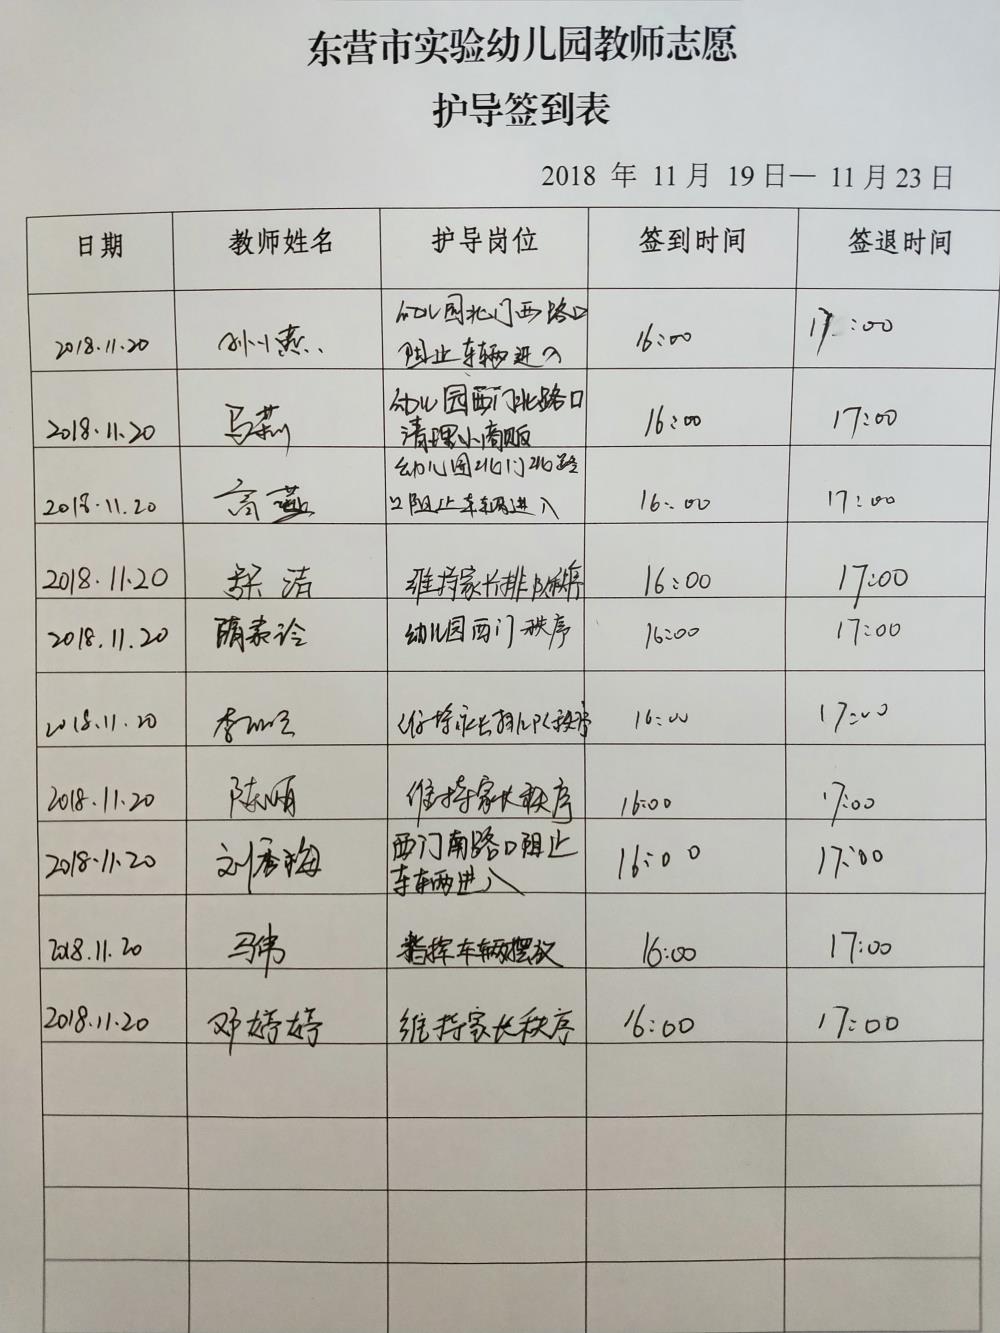 东营市实验幼儿园教师志愿
护导签到表
2018 年 11月 19日— 11月23日
日期 教师姓名 护导岗位 签到时间 签退时间
幼儿园北门西路口
2018.11.20 16:00 17:00
阻止车辆进入
幼儿园西门北路口
2018.11.20 马莉 16:00 17:00
清理小商贩
幼儿园北门北路
2018.11.20 高燕 16:00 17:00
口阻止车辆进入
2018.11.20 洁 维持家长排队秩序 16:00 17:00
2018.11.20 隋 幼儿园西门秩序 16:00 17:00
2018.11.20 李 维持家长排队秩序 16:00 17:00
2018.11.20 陈 维持家长秩序 16:00 17:00
西门南路口阻止
2018.11.20 刘秀梅 16:00 17:00
车辆进入
2018.11.20 马伟 指挥车辆摆放 16:00 17:00
2018.11.20 邓婷婷 维持家长秩序 16:00 17:00